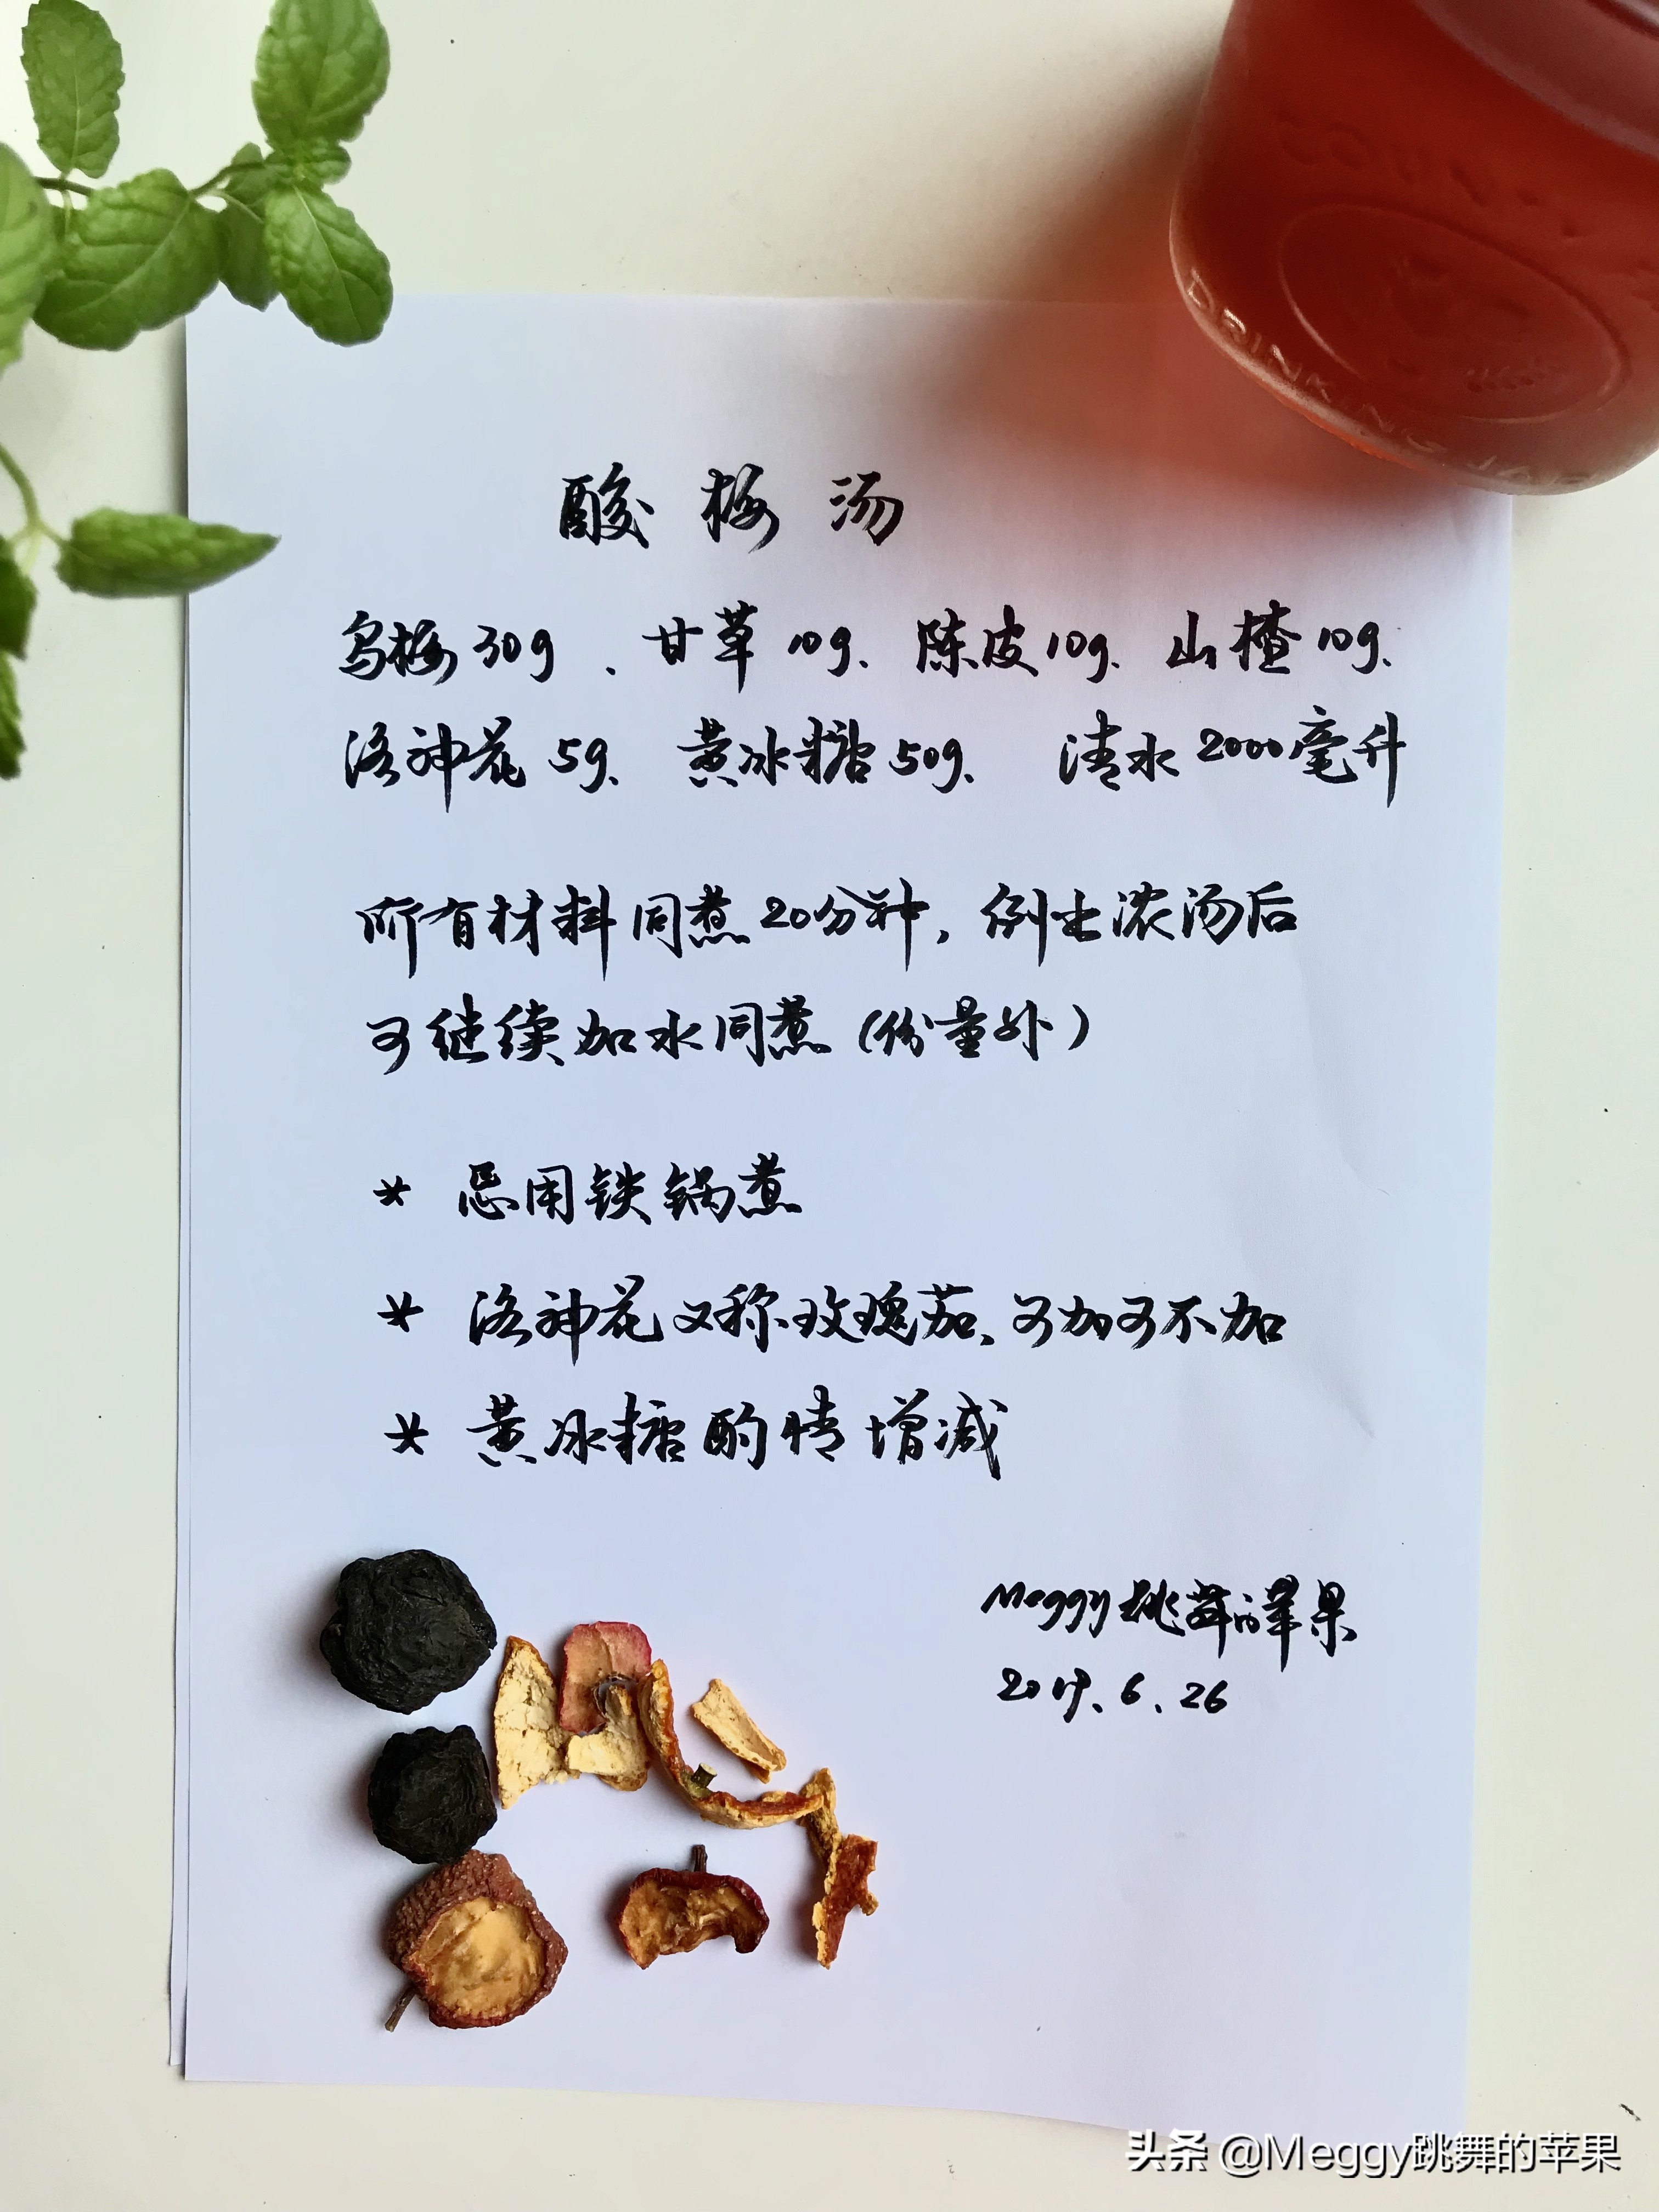 COUN
DRINKING JA
酸梅汤
乌梅30g、甘草10g、陈皮10g、山楂10g、
洛神花5g、黄冰糖50g、清水2000毫升
所有材料同煮20分钟,倒出浓汤后
可继续加水同煮(份量外)
* 忌用铁锅煮
* 洛神花又称玫瑰茄、可加可不加
* 黄冰糖酌情增减
Meggy跳舞的苹果
2019.6.26
头条 @Meggy跳舞的苹果